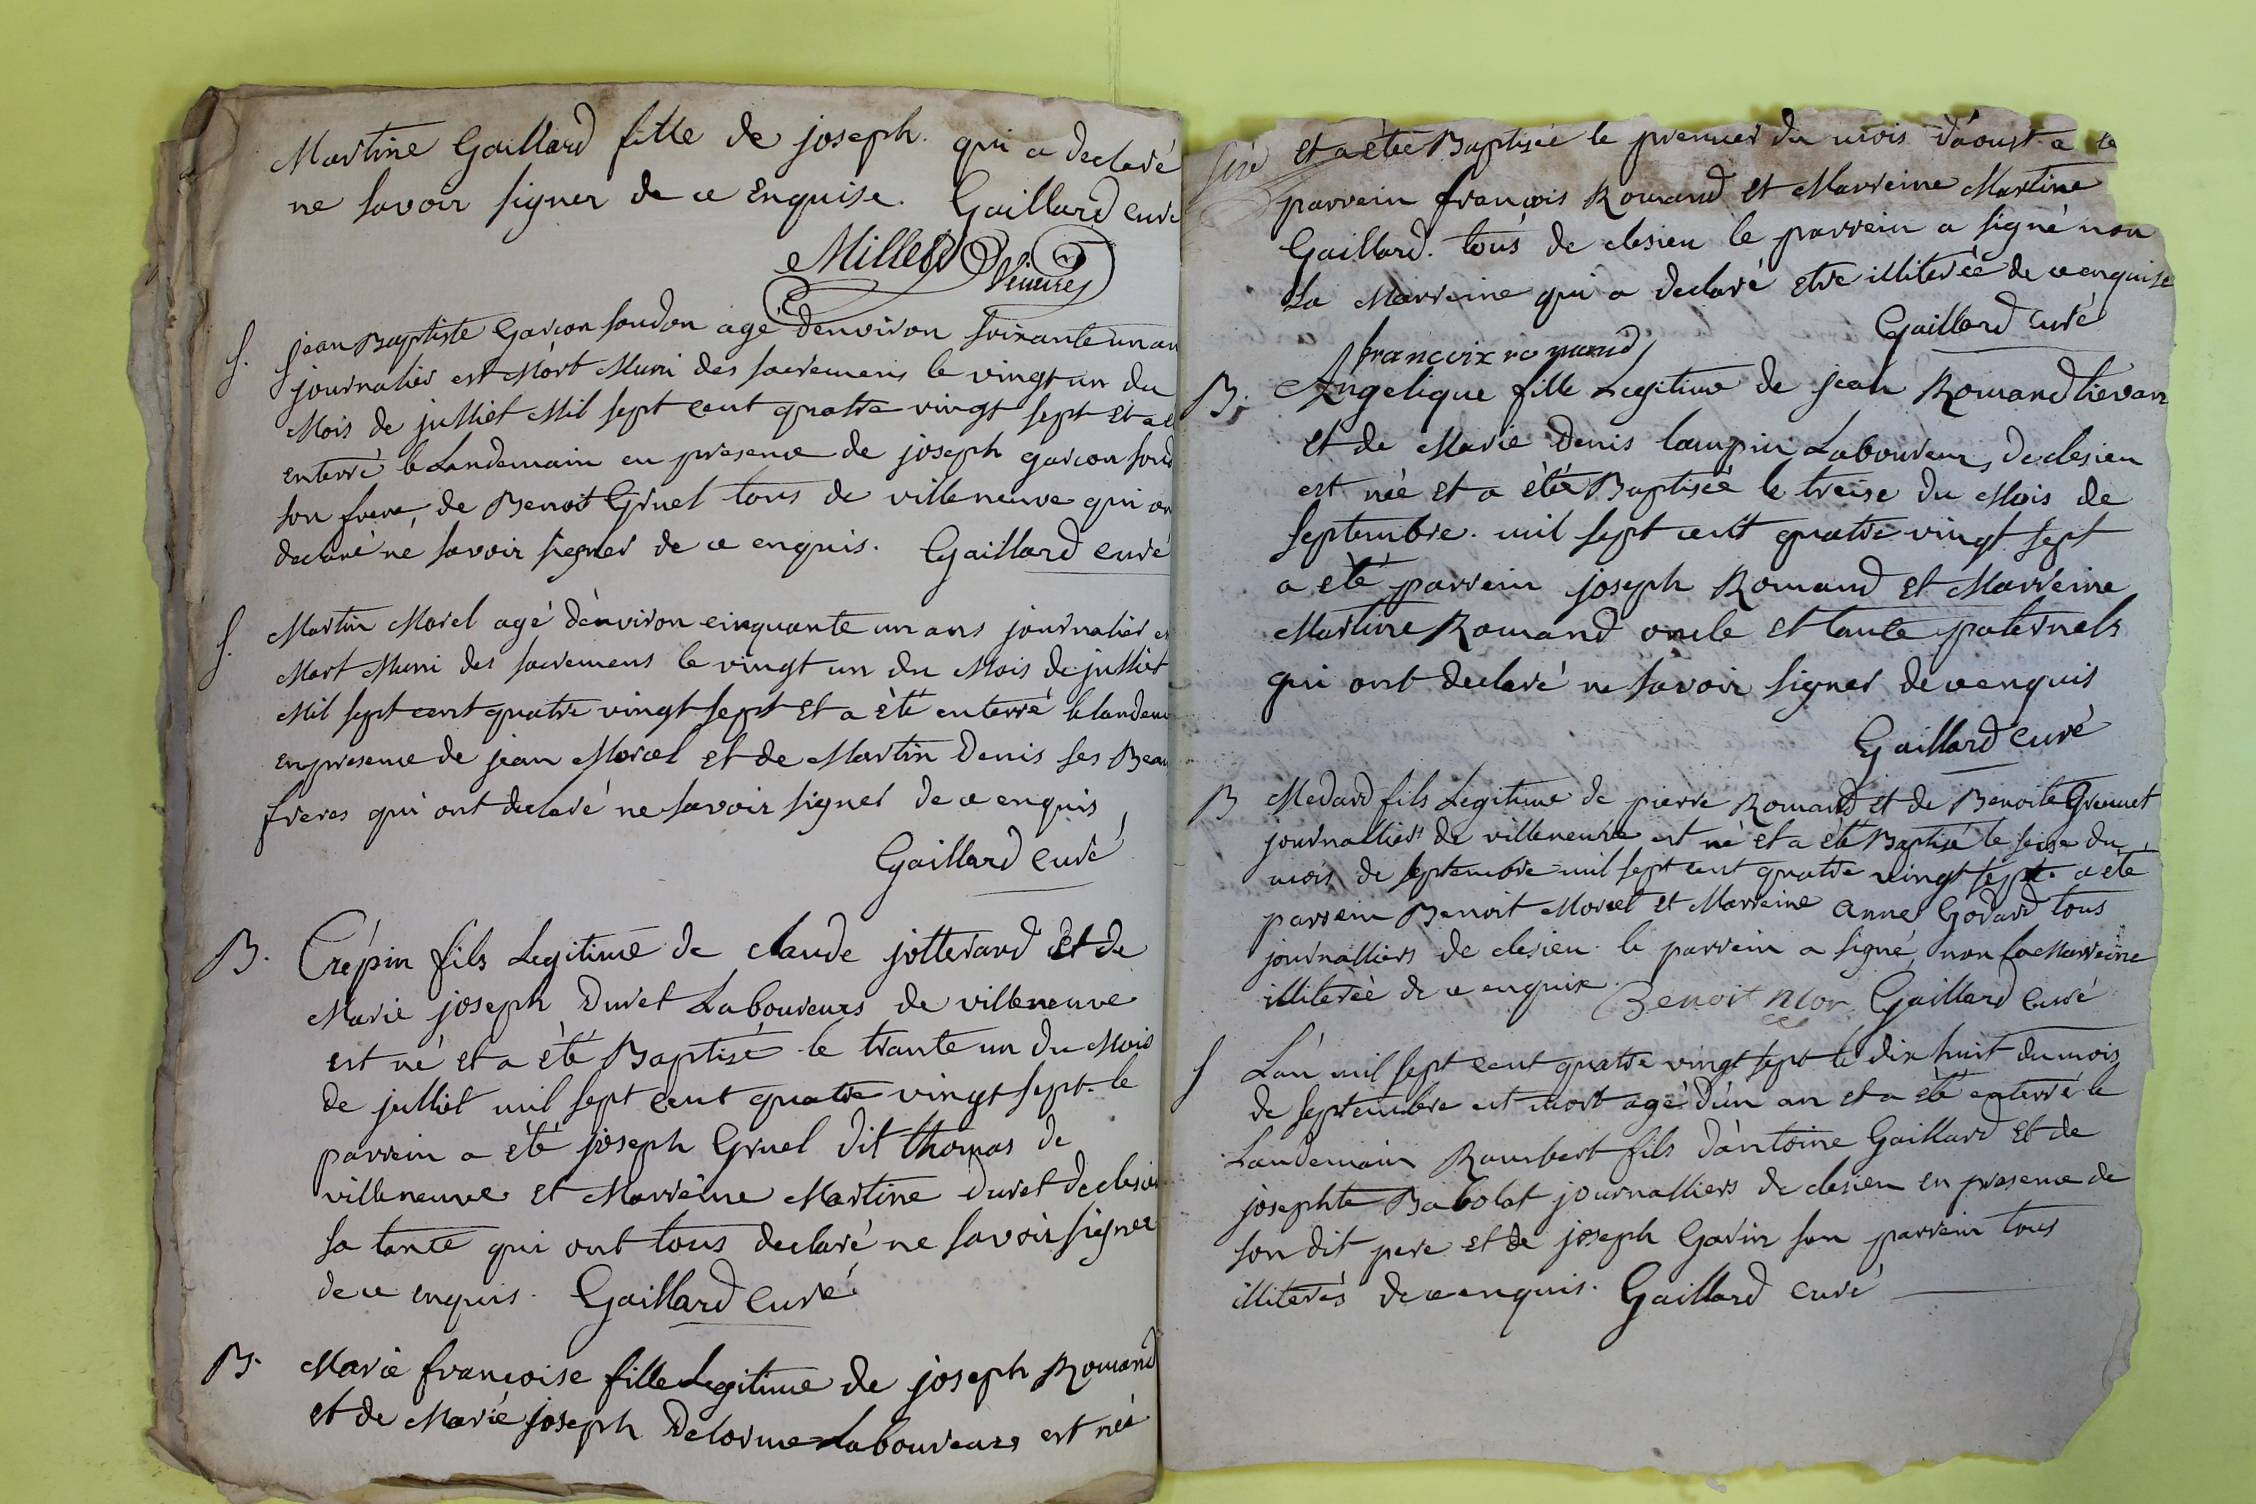 Martine Gaillard fille de joseph qui a declaré
ne savoir signer de ce enquise. Gaillard curé
Millet
S. jean Baptiste Garcon soudon agé d'environ soixante un an
journalier est Mort Muni des sacremens le vingt un du
Mois de julliet Mil sept cent quatre vingt sept et a é
enterré le Landemain en presence de joseph garcon soud
son frere, de Benoit Gruel tous de villeneuve qui on
declaré ne savoir signer de ce enquis. Gaillard curé
S. Martin Morel agé d'environ cinquante un ans journalier es
Mort Muni des sacremens le vingt un du Mois de julliet
Mil sept cent quatre vingt sept et a été enterré le landem
en presence de jean Morel et de Martin Denis ses Beau
freres qui ont declaré ne savoir signer de ce enquis
Gaillard curé
B. Crépin fils Legitime de claude jotterand et de
Marie joseph Duret Laboureurs de villeneuve
est né et a été Baptisé le trante un du Mois
de julliet mil sept cent quatre vingt sept le
parrein a été joseph Gruel dit thomas de
villeneuve et Marreine Martine Duret de clesieu
sa tante qui ont tous declaré ne savoir signer
de ce enquis. Gaillard curé
B. Marie francoise fille Legitime de joseph Romand
et de Marie joseph Delorme Laboureurs est née
et a étée Baptisée le premier du mois d'aoust a
parrein francois Romand et Marreine Martine
Gaillard. tous de clesieu le parrein a signé non
La Marreine qui a declaré etre illiterée de ce enquise
Gaillard curé
francoix romand
B. Angelique fille Legitime de jean Romand lievan
et de Marie Denis lampin Laboureurs de clesieu
est née et a étée Baptisée le treise du Mois de
septembre. mil sept cent quatre vingt sept
a été parrein joseph Romand et Marreine
Martine Romand oncle et tante paternels
qui ont declaré ne savoir signer de ce enquis
Gaillard curé
B Medard fils Legitime de pierre Romand et de Benoite
journalliers de villeneuve est né et a été Baptisé le seise du
mois de septembre mil sept cent quatre vingt sept a été
parrein Benoit Morel et Marreine anne Godard tous
journalliers de clesieu. le parrein a signé non la Marreine
illiterée de ce enquix. Benoit mor Gaillard curé
S L'an mil sept cent quatre vingt sept le dix huit du mois
de septembre est mort agé d'un an et a été enterré le
Landemain Rambert fils d'antoine Gaillard et de
josephte Babolat journalliers de clesieu en presence de
son dit pere et de joseph Garin son parrein tous
illiterés de ce enquis. Gaillard curé